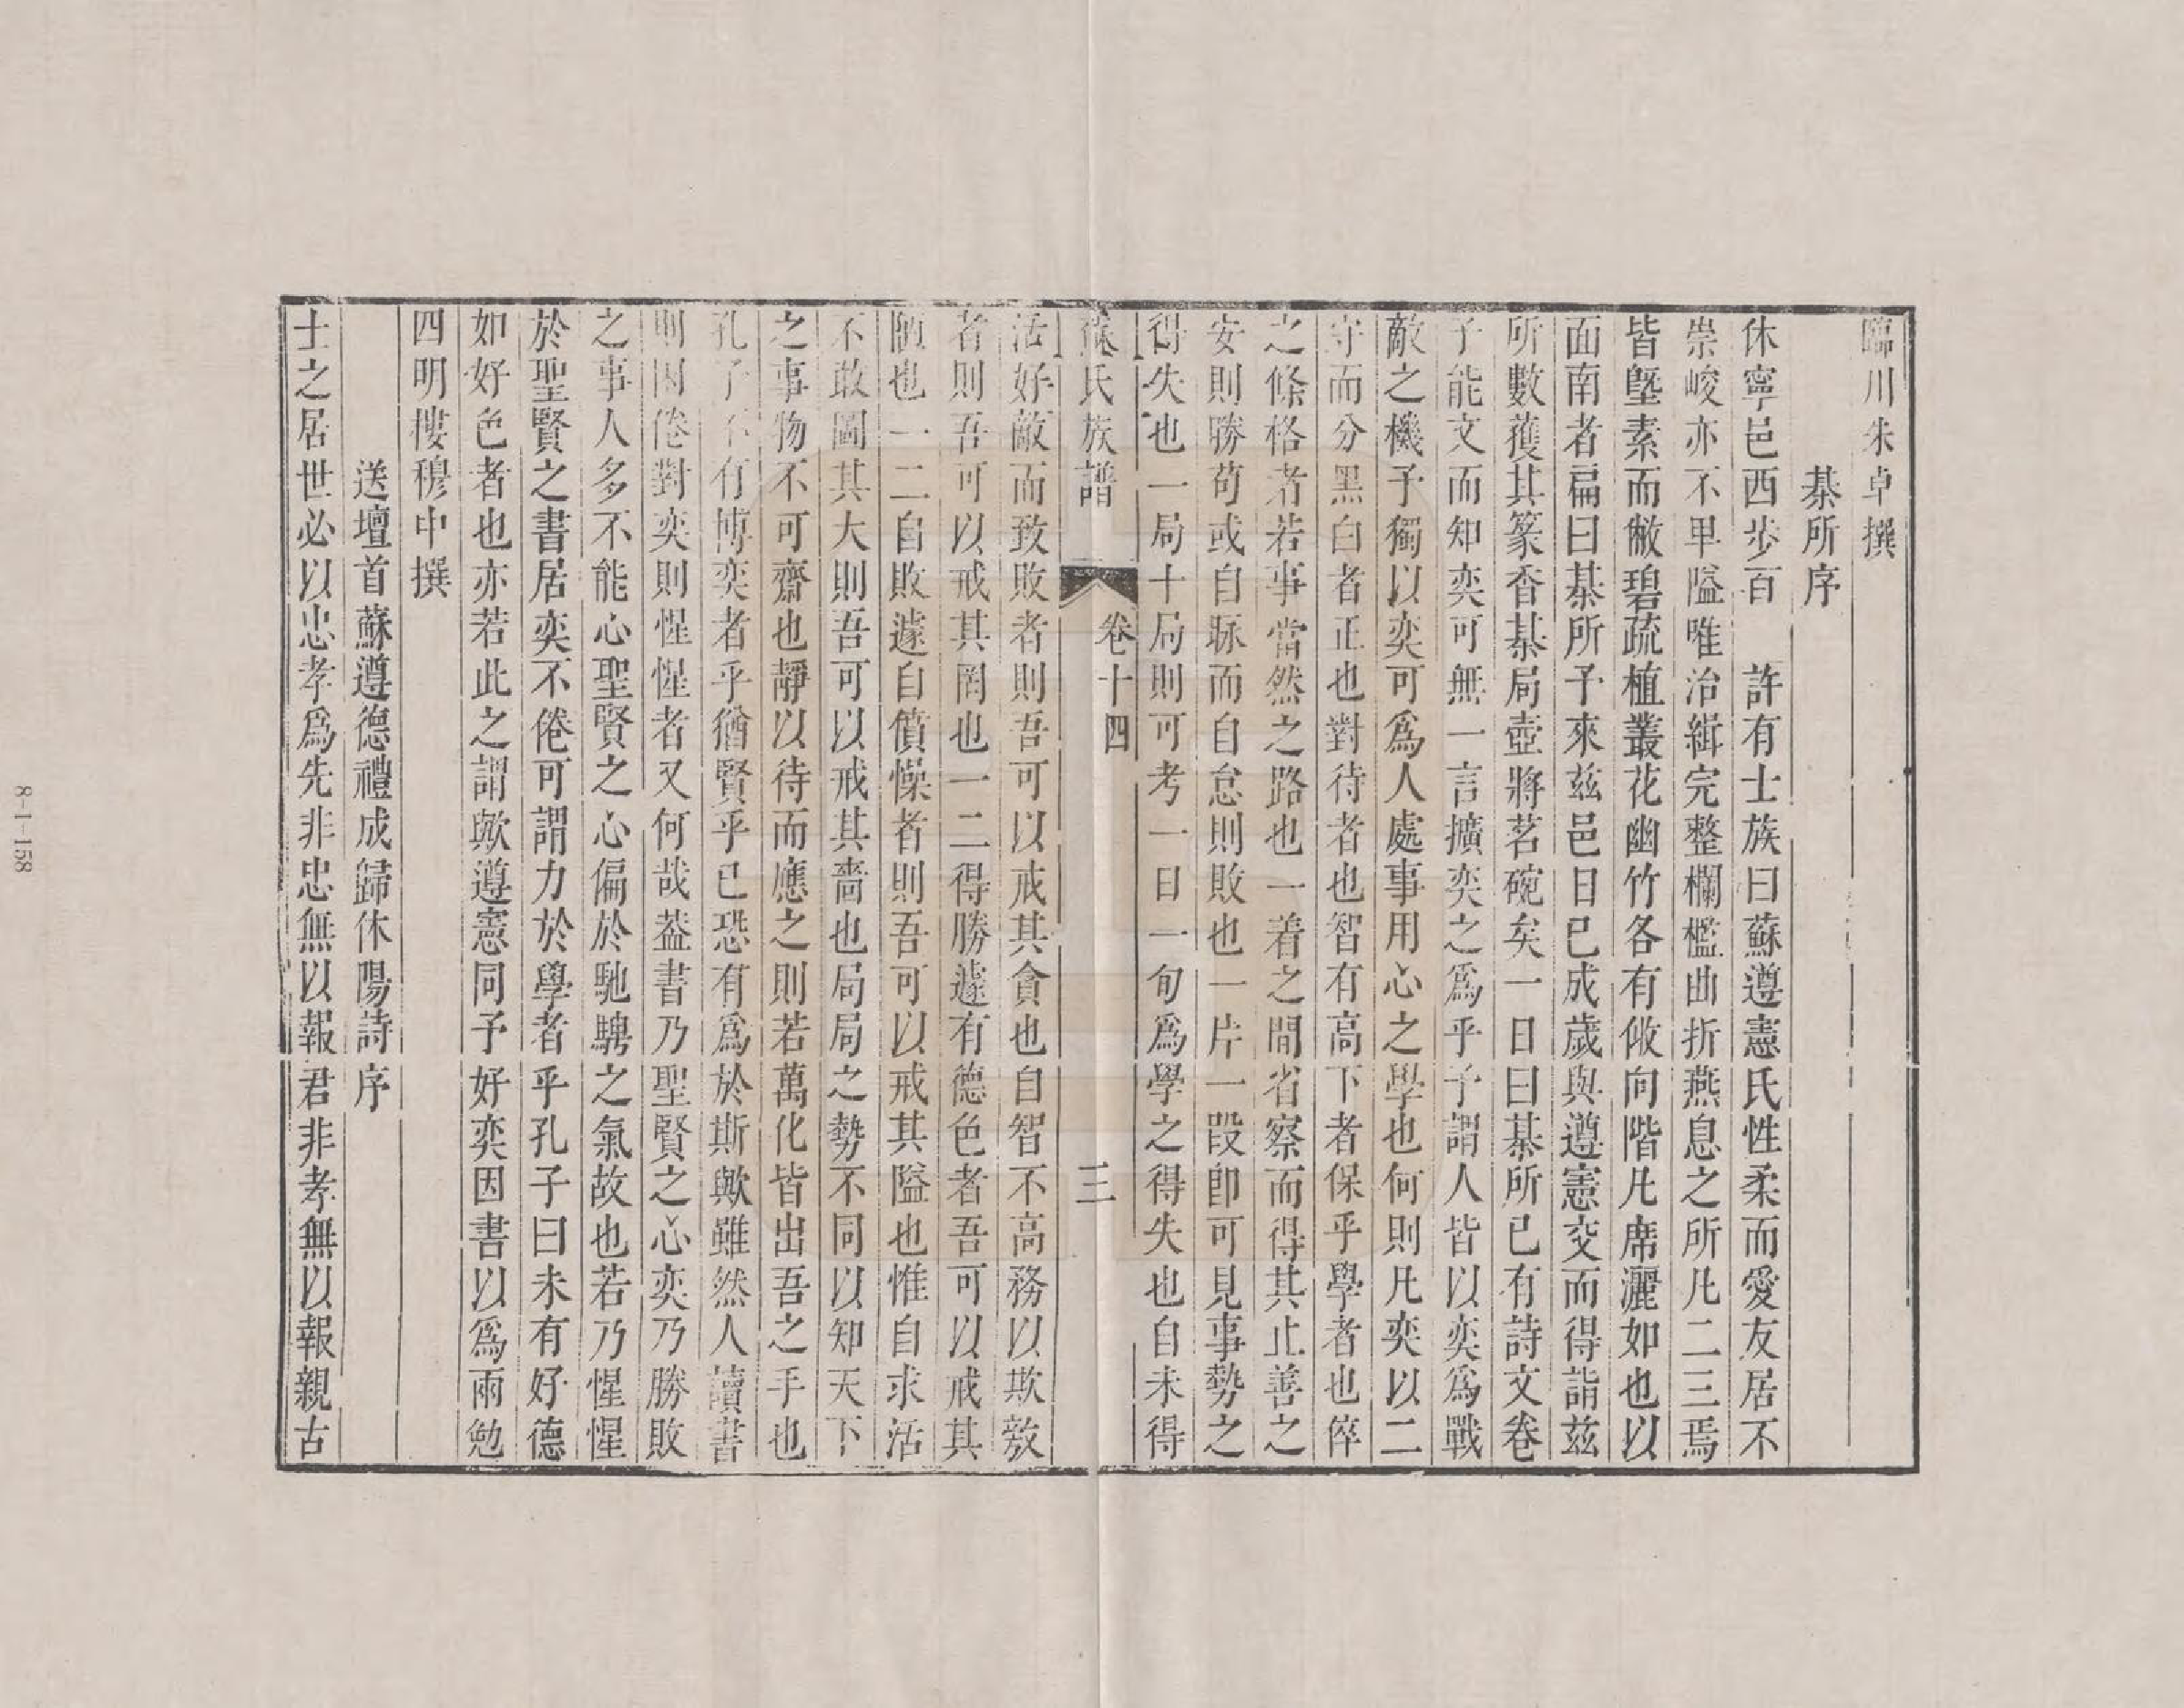 臨川朱卓撰
棊所序
休寧邑西步百　許有士族曰蘇遵憲氏性柔而愛友居不
崇峻亦不卑隘唯治緝完整欄檻曲折燕息之所凡二三焉
皆塈素而敝碧疏植叢花幽竹各有攸向階凡席灑如也以
面南者扁曰棊所予來兹邑日已成歲與遵憲交而得詣兹
所數獲其篆香棊局壺將茗碗矣一日曰棊所已有詩文卷
子能文而知奕可無一言擴奕之爲乎予謂人皆以奕爲戰
敵之機予獨以奕可爲人處事用心之學也何則凡奕以二
守而分黑白者正也對待者也智有高下者保乎學者也倅
之條格者若事當然之路也一着之間省察而得其止善之
安則勝苟或自眎而自怠則敗也一片一段卽可見事勢之
得失也一局十局則可考一日一旬爲學之得失也自未得
蘇氏族譜　卷十四　三
活好敵而致敗者則吾可以戒其貪也自智不高務以欺敩
者則吾可以戒其罔也一二得勝遽有德色者吾可以戒其
陋也一二自敗遽自僨懆者則吾可以戒其隘也惟自求活
不敢圖其大則吾可以戒其嗇也局局之勢不同以知天下
之事物不可齋也靜以待而應之則若萬化皆出吾之手也
孔子不有博奕者乎猶賢乎已恐有爲於斯歟雖然人讀書
則困倦對奕則惺惺者又何哉葢書乃聖賢之心奕乃勝敗
之事人多不能心聖賢之心偏於馳騁之氣故也若乃惺惺
於聖賢之書居奕不倦可謂力於學者乎孔子曰未有好德
如好色者也亦若此之謂歟遵憲同予好奕因書以爲兩勉
四明摟穆中撰
送壇首蘇遵德禮成歸休陽詩序
士之居世必以忠孝爲先非忠無以報君非孝無以報親古
8-1-158